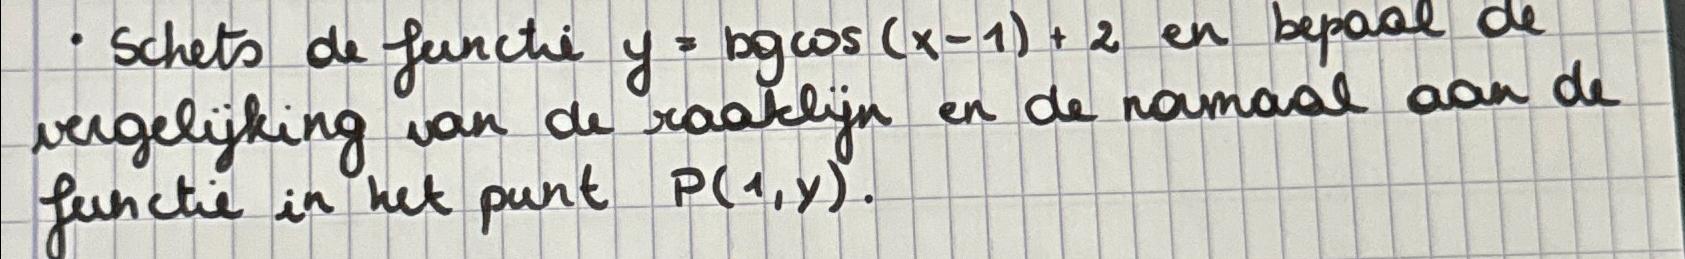 · Schets de functie y = bgcos (x-1) + 2 en bepaal de
vergelijking van de raaklijn en de normaal aan de
functie in het punt P(1,y).